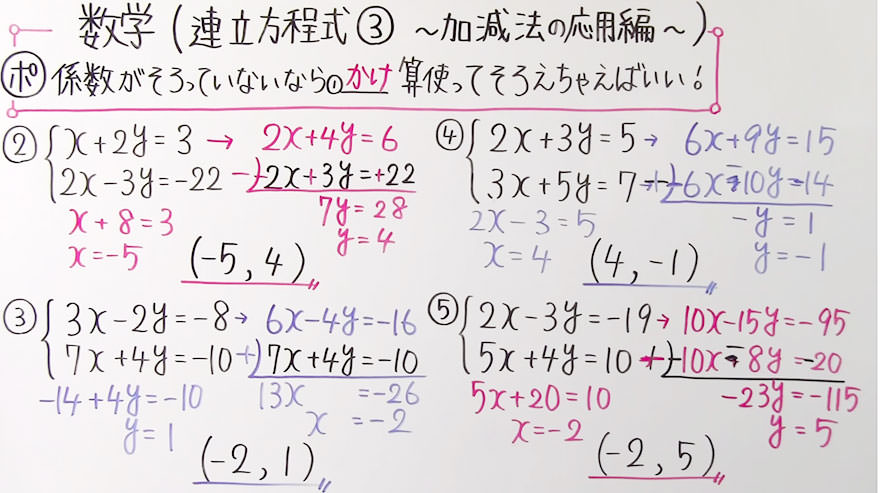 数学(連立方程式③ ~加減法の応用編~)
ポ 係数がそろっていないなら①かけ算使ってそろえちゃえばいい!
② x+2y=3 → 2x+4y=6
2x-3y=-22 -) -2x+3y=+22
7y=28
x+8=3
y=4
x=-5
(-5, 4)
③ 3x-2y=-8 → 6x-4y=-16
7x+4y=-10 +) 7x+4y=-10
-14+4y=-10
13x =-26
y=1
x =-2
(-2, 1)
④ 2x+3y=5 → 6x+9y=15
3x+5y=7 → +) -6x-10y=-14
2x-3=5
-y=1
x=4
y=-1
(4, -1)
⑤ 2x-3y=-19 → 10x-15y=-95
5x+4y=10 → +) -10x-8y=-20
5x+20=10
-23y=-115
x=-2
y=5
(-2, 5)